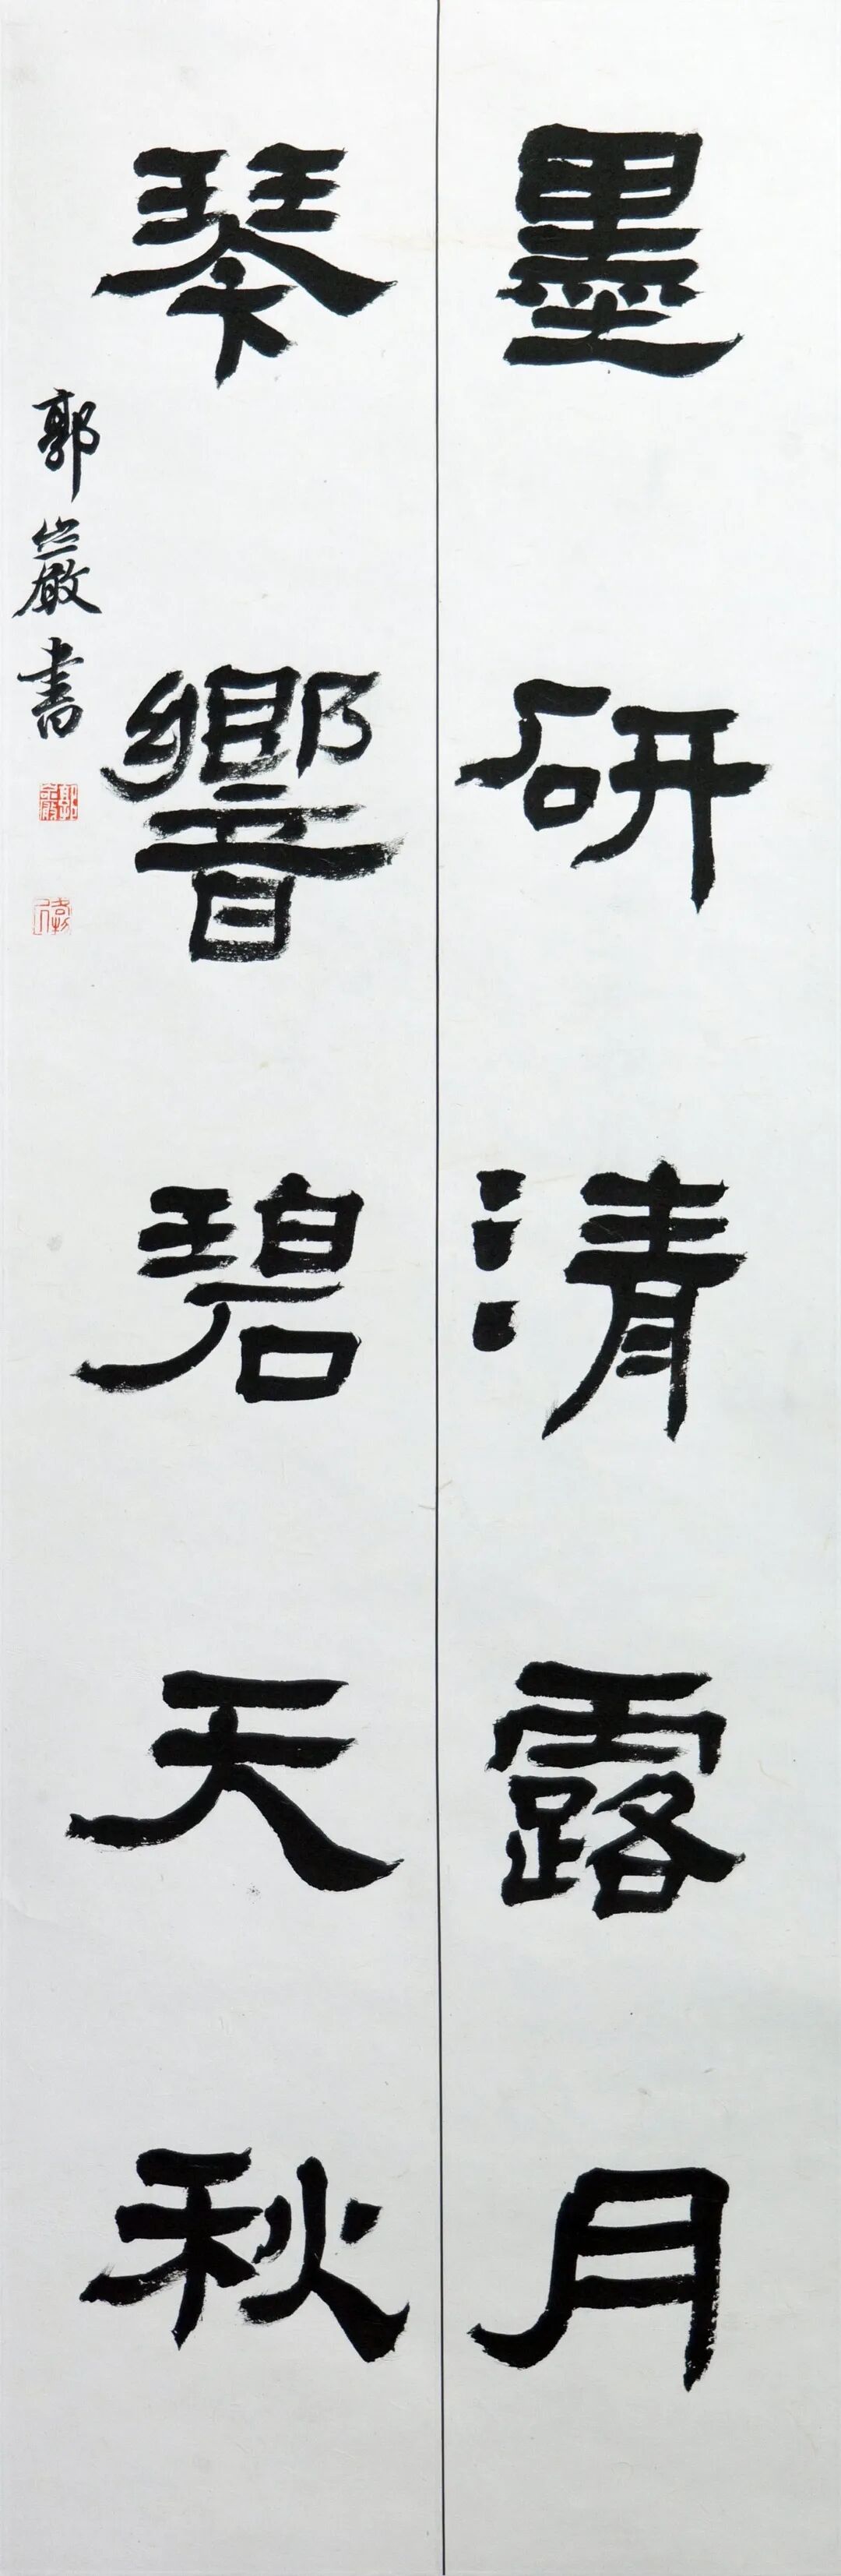 墨研清露月
琴響碧天秋
郭巖書